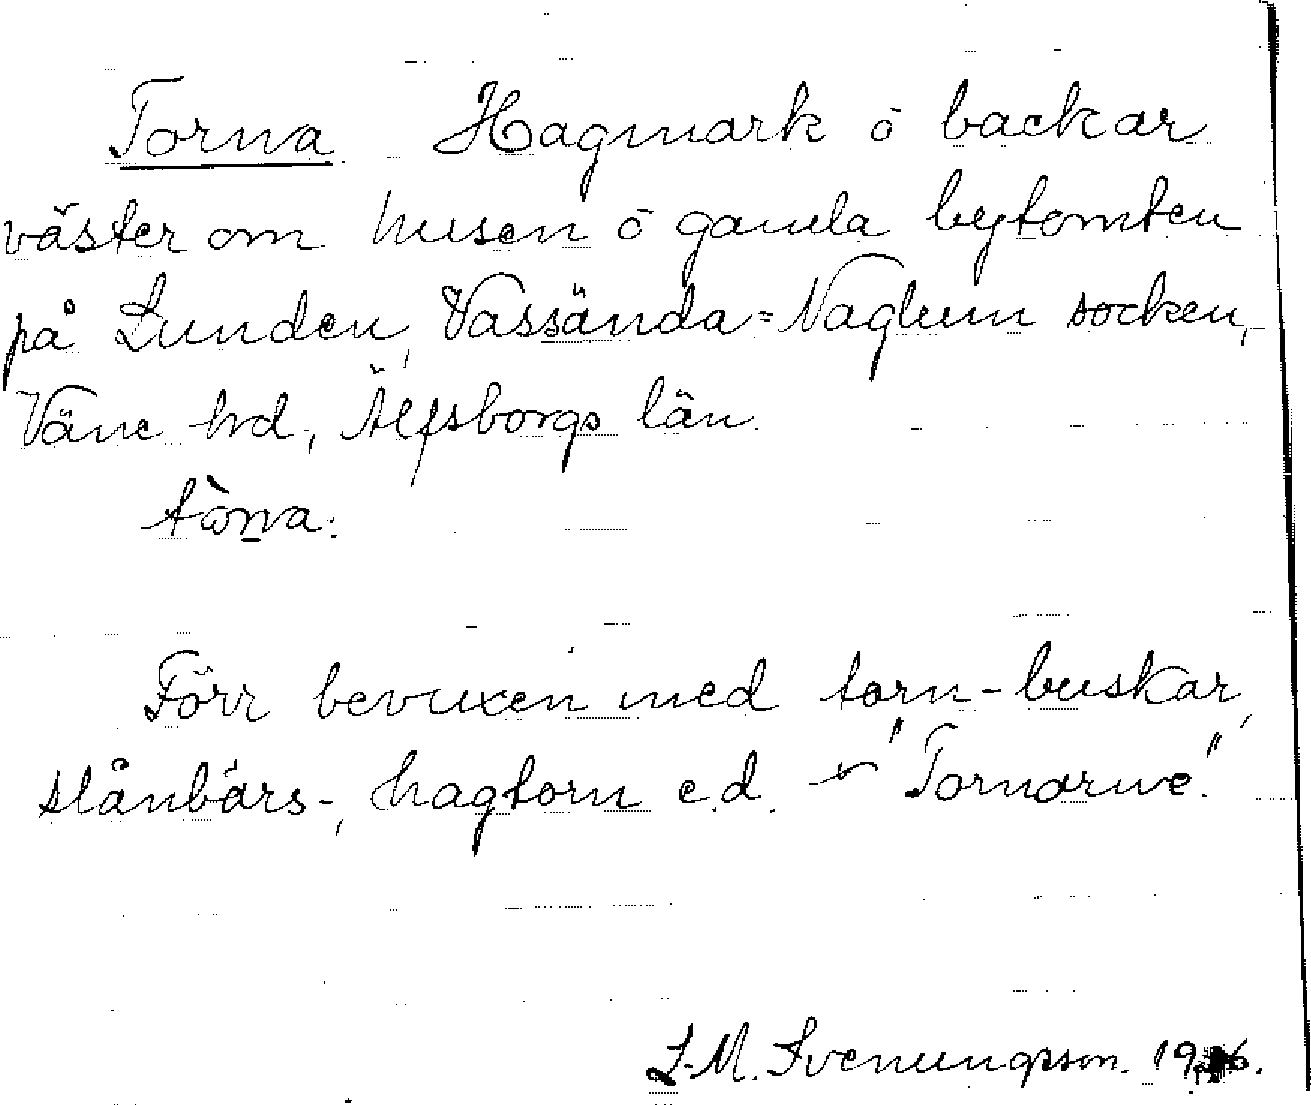 Torna. Hagmark ö backar
väster om husen ö gamla bytomten
på Lunden, Vassända=Naglum socken,
Väne hd, Älfsborgs län.
tòrna.
Förr bevuxen med torn-buskar,
slånbärs-, hagtorn e.d.
L.M. Svenungsson.